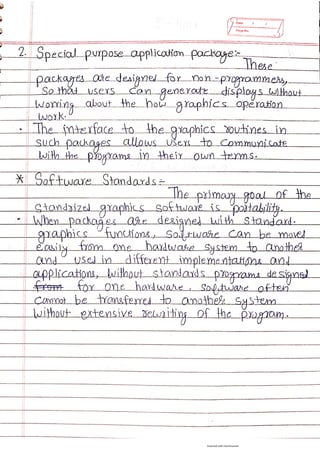 Date
Page No.
2. Special purpose application package:-
These
packages are designed for non-programmers,
So that users can generate displays without
worring about the how graphics operation
work.
• The interface to the graphics routines in
such packages allows users to communicate
with the programs in their own terms.
* Software Standards:-
The primary goal of the
Standrized graphics software is portability.
- When packages are designed with standard.
graphics functions, Software can be moved
easily from one hardware system to another
and used in different implementations and
applications, without standards programs designed
from for one hardware. Software often
cannot be transferred to another system
without extensive rewriting of the program.